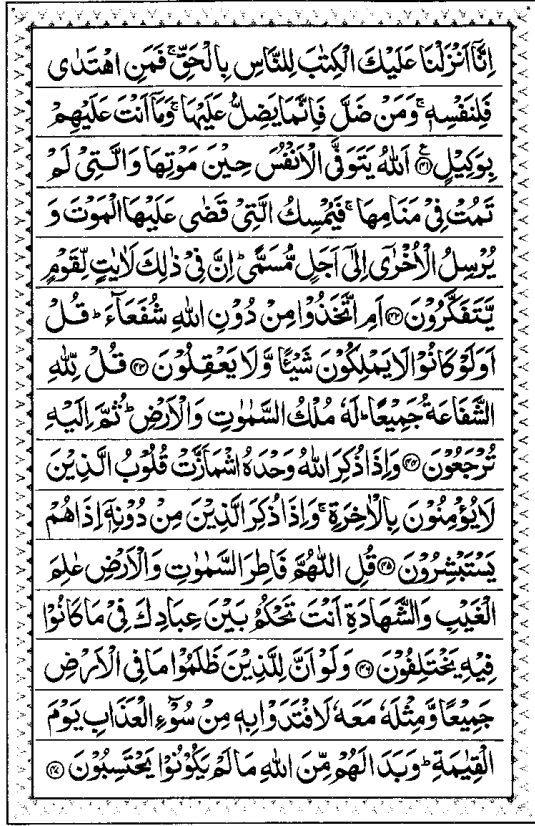 اِنَّاۤ اَنْزَلْنَا عَلَیْكَ الْكِتٰبَ لِلنَّاسِ بِالْحَقِّ ۚ فَمَنِ اهْتَدٰی
فَلِنَفْسِهٖ ۚ وَمَنْ ضَلَّ فَاِنَّمَا یَضِلُّ عَلَیْهَا ۚ وَمَاۤ اَنْتَ عَلَیْهِمْ
بِوَكِیْلٍ ﴿۴۱﴾ اَللّٰهُ یَتَوَفَّی الْاَنْفُسَ حِیْنَ مَوْتِهَا وَالَّتِیْ لَمْ
تَمُتْ فِیْ مَنَامِهَا ۚ فَیُمْسِكُ الَّتِیْ قَضٰی عَلَیْهَا الْمَوْتَ وَ
یُرْسِلُ الْاُخْرٰۤی اِلٰۤی اَجَلٍ مُّسَمًّی ؕ اِنَّ فِیْ ذٰلِكَ لَاٰیٰتٍ لِّقَوْمٍ
یَّتَفَكَّرُوْنَ ﴿۴۲﴾ اَمِ اتَّخَذُوْا مِنْ دُوْنِ اللّٰهِ شُفَعَآءَ ؕ قُلْ
اَوَلَوْ كَانُوْا لَا یَمْلِكُوْنَ شَیْـًٔا وَّلَا یَعْقِلُوْنَ ﴿۴۳﴾ قُلْ لِّلّٰهِ
الشَّفَاعَةُ جَمِیْعًا ؕ لَهٗ مُلْكُ السَّمٰوٰتِ وَالْاَرْضِ ؕ ثُمَّ اِلَیْهِ
تُرْجَعُوْنَ ﴿۴۴﴾ وَاِذَا ذُكِرَ اللّٰهُ وَحْدَهُ اشْمَاَزَّتْ قُلُوْبُ الَّذِیْنَ
لَا یُؤْمِنُوْنَ بِالْاٰخِرَةِ ۚ وَاِذَا ذُكِرَ الَّذِیْنَ مِنْ دُوْنِهٖۤ اِذَا هُمْ
یَسْتَبْشِرُوْنَ ﴿۴۵﴾ قُلِ اللّٰهُمَّ فَاطِرَ السَّمٰوٰتِ وَالْاَرْضِ عٰلِمَ
الْغَیْبِ وَالشَّهَادَةِ اَنْتَ تَحْكُمُ بَیْنَ عِبَادِكَ فِیْ مَا كَانُوْا
فِیْهِ یَخْتَلِفُوْنَ ﴿۴۶﴾ وَلَوْ اَنَّ لِلَّذِیْنَ ظَلَمُوْا مَا فِی الْاَرْضِ
جَمِیْعًا وَّمِثْلَهٗ مَعَهٗ لَافْتَدَوْا بِهٖ مِنْ سُوْٓءِ الْعَذَابِ یَوْمَ
الْقِیٰمَةِ ؕ وَبَدَا لَهُمْ مِّنَ اللّٰهِ مَا لَمْ یَكُوْنُوْا یَحْتَسِبُوْنَ ﴿۴۷﴾